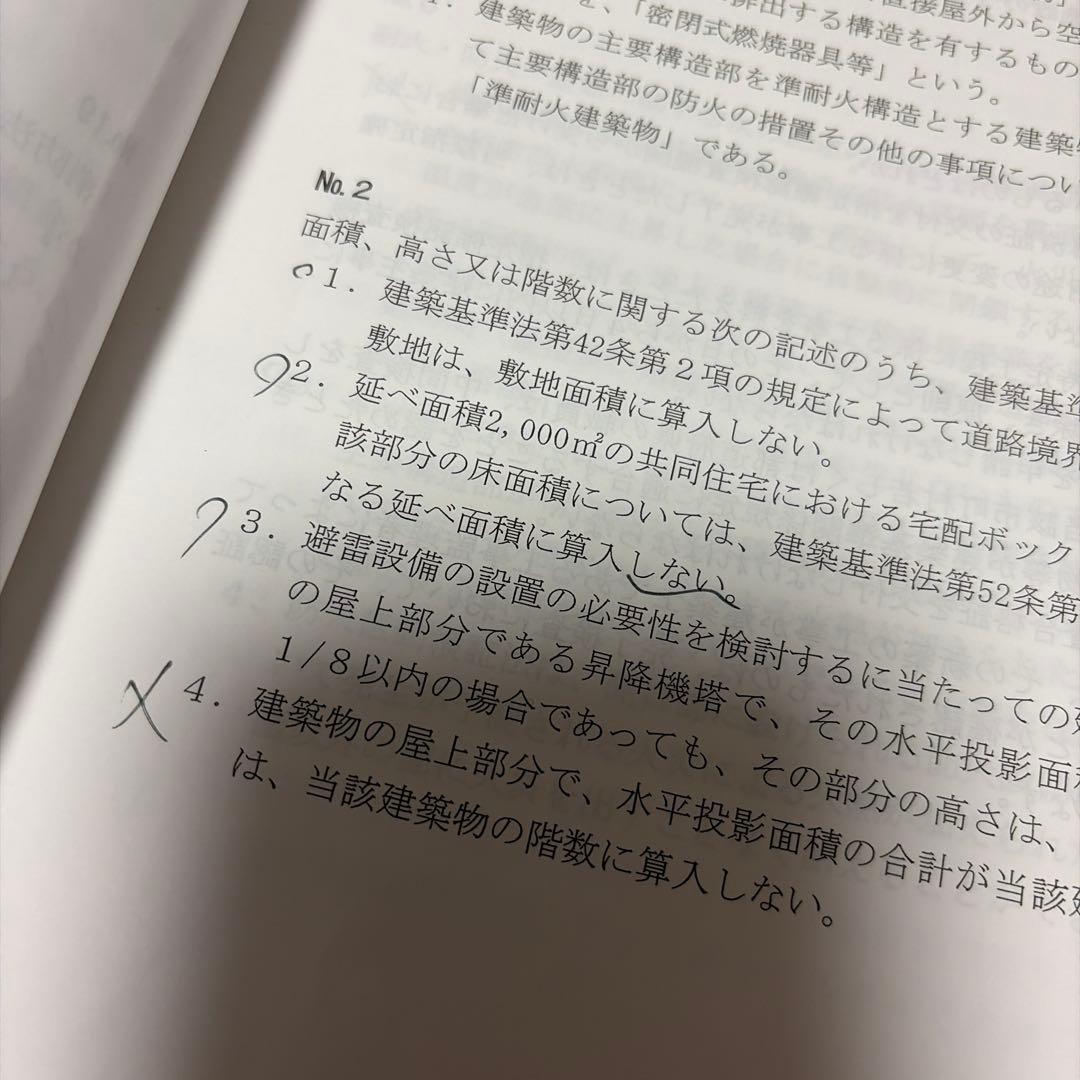 直接屋外から空
排出する構造を有するもの
を、「密閉式燃焼器具等」という。
建築物の主要構造部を準耐火構造とする建築物
て主要構造部の防火の措置その他の事項につい
「準耐火建築物」である。
No.2
面積、高さ又は階数に関する次の記述のうち、建築基準
1. 建築基準法第42条第2項の規定によって道路境界
敷地は、敷地面積に算入しない。
2. 延べ面積2,000㎡の共同住宅における宅配ボック
該部分の床面積については、建築基準法第52条第
なる延べ面積に算入しない。
3. 避雷設備の設置の必要性を検討するに当たっての建
の屋上部分である昇降機塔で、その水平投影面
1/8以内の場合であっても、その部分の高さは、
4. 建築物の屋上部分で、水平投影面積の合計が当該建
は、当該建築物の階数に算入しない。